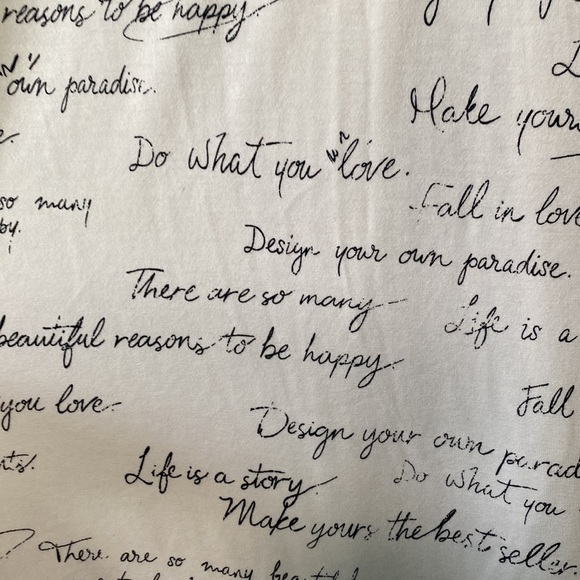 reasons to be happy.
own paradise.
Make yours
Do what you love.
so many
Fall in love
Design your own paradise.
There are so many
Life is a
beautiful reasons to be happy.
you love.
Fall
Design your own parad
Life is a story.
Do what you
Make yours the best seller.
There are so many beautiful